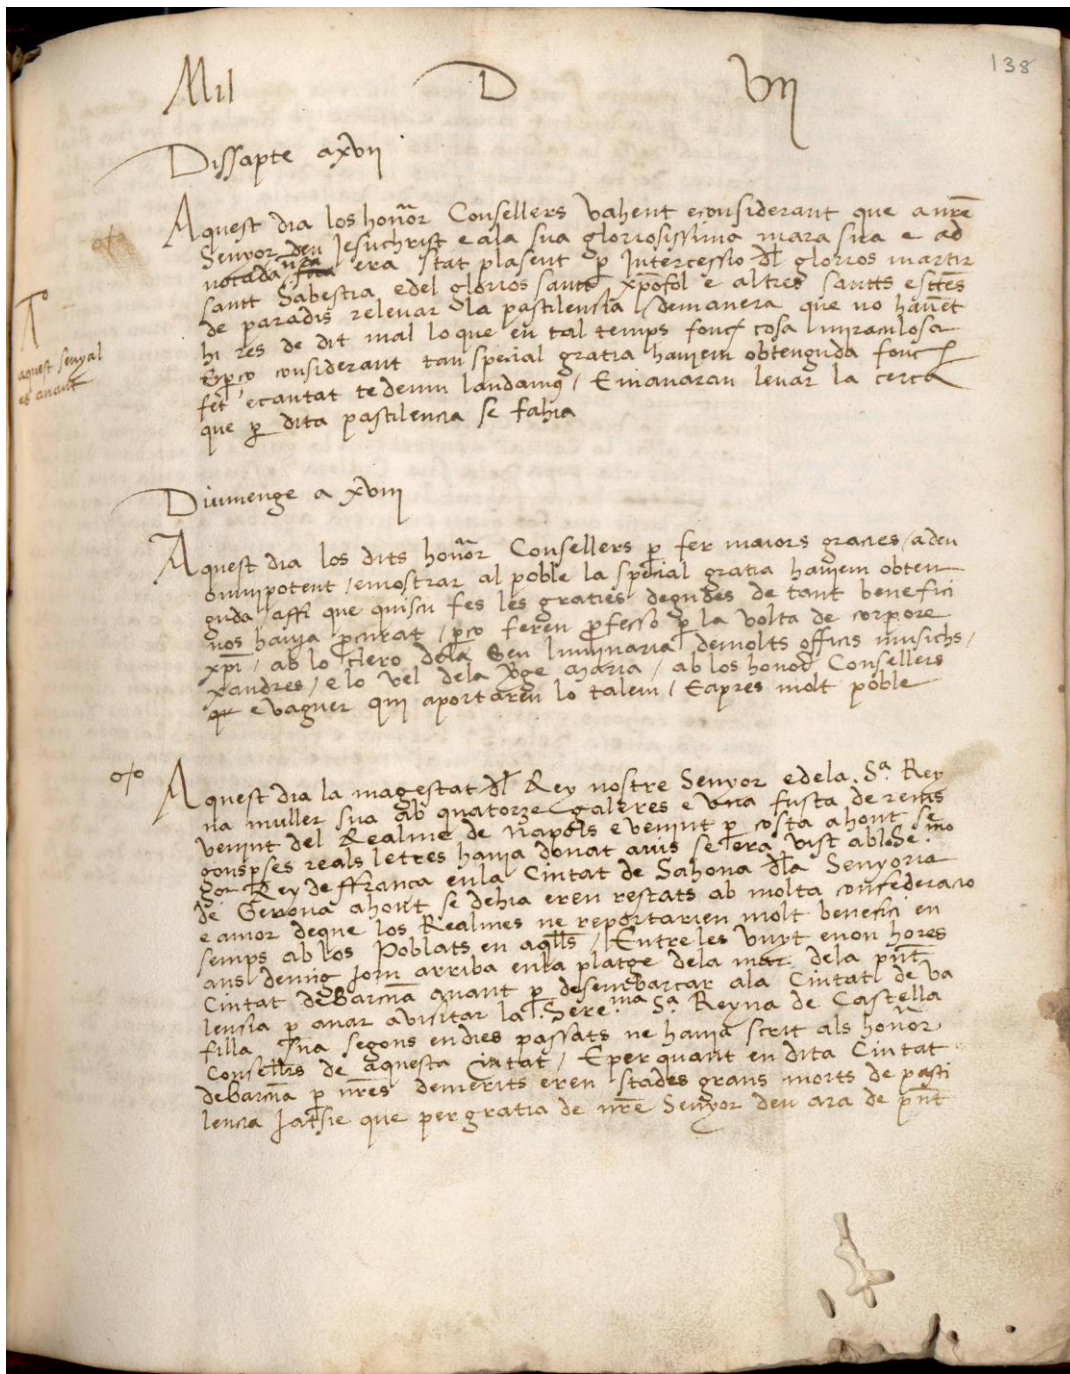 138
Mil D Vij
Dissapte a xvij
Aquest dia los honor Consellers vahent econsiderant que a nre
Senyor deu Jesuchrist e ala sua gloriosissima mara sua e ad
uocada nra era stat plasent p Intercessio dl glorios martir
santt Sabestia edel glorios santt xpofol e altres santts e sttes
de paradis releuar la pastilencia / demanera que no hauet
hi res de dit mal lo que en tal temps fonch cosa miraculosa
E pço considerant tan special gratia hauiem obtenguda fonch
fet ecantat tedeum laudamus / E manaran leuar la cerca
que p dita pastilencia se fahia
aquest senyal
es auant
Diumenge a xviij
Aquest dia los dits honor Consellers p fer maiors gracies / a deu
omnipotent / emostrar al poble la special gratia hauiem obten
guda / affi que quiscu fes les graties degudes de tant benefici
nos hauia pcurat / pço feren pfesso p la volta de corpore
xpi / ab lo clero dela Seu luminaria demolts officis musichs /
xandres / e lo vel dela Vge maria / ab los honor Consellers
que e vaguer qui aportaren lo talem / E apres molt poble
Aquest dia la magestat dl Rey nostre Senyor edela . Sa. Rey
na muller sua ab quatorze galeres e vna fusta de rems
venint del Realme de Napols e venint p costa ahont se
gons pses reals letres hauia donat auis se era vist ab lo Se.mo
Rey de ffranca en la Ciutat de Sahona dla Senyoria
de Genoua ahont se dehia eren restats ab molta confederacio
e amor deque los Realmes ne reportarien molt benefici en
semps ab los Poblats en aqlls / Entre les vuyt enou hores
ans demig jorn arriba enla platge dela mar dela pnt
Ciutat deBarcna auant p desembarcar ala Ciutat de va
lensia p anar avisitar la . Sere.ma Sa. Reyna de Castella
filla sua segons endies passats ne hauia scrit als honor
Consellrs de aquesta Ciutat / E per quant en dita Ciutat
deBarcna p nres demerits eren stades grans morts de pasti
lencia jatsie que per gratia de nre Senyor deu ara de pnt